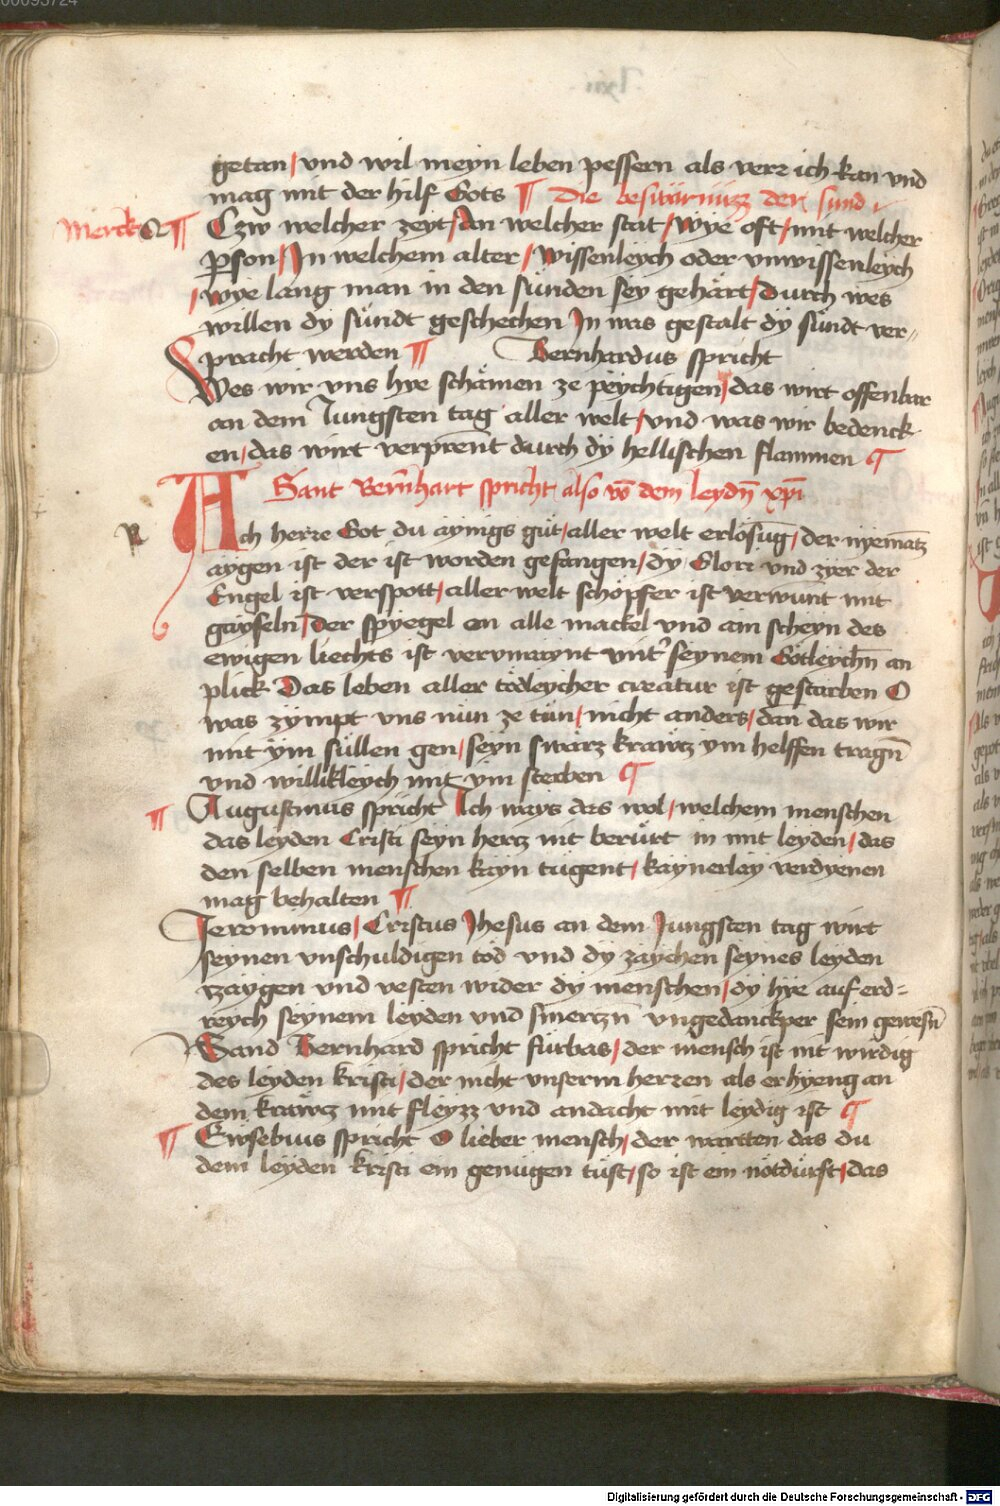 getan / vnd wil meyn leben pessern als verr ich kan vnd
mag mit der hilf Gots ¶ Die beswärnüzz der sund
Merck ¶ Czw welcher zeyt / An welcher stat / wye oft / mit welcher
ꝑson / In welchem alter / wissenleych oder vnwissenleych
/ wye lang man in den sünden sey gehärt / Durch wes
willen dy sündt geschechen In was gestalt dy sündt ver„
pracht werden ¶ Bernhardus spricht
Wes wir vns hye schämen ze peychtigen / das wirt offenbar
an dem Jungsten tag aller welt / vnd was wir bedenck
en / das wirt verprent durch dy hellischen flammen ¶
Sant Bernhart spricht also vō dem leydn̄ xp̄i
Ach herre Got du aynigs güt / aller welt erlösūg / der nyemātz
aygen ist der ist worden gefangen / dy Glori vnd zyer der
Engel ist verspott / aller welt schöpfer ist verwunt mit
gayseln / der spyegel on alle mackel vnd ain scheyn des
ewigen liechts ist vermaynt vnt' seynem Götleychn̄ an
plick Das leben aller tödleycher creatur ist gestarben O
was zympt vns nün ze tün / nicht anders / dan das wir
mit ym süllen gen / seyn swärz kräwcz ym helffen tragn̄
vnd willikleych mit ym sterben ¶
¶ Augustinus spricht Ich ways das wol / welchem menschen
das leyden Cristi seyn hertz nit berürt in mit leyden / das
den selben menschen kayn tugent / kaynerlay verdyenen
mag behalten ¶
Jeronimus / Cristus Jhesus an dem Jungsten tag wirt
seynen vnschuldigen tod vnd dy zaychen seynes leyden
tzaygen vnd vesten wider dy menschen / dy hye auf erd=
reych seynem leyden vnd smertzn̄ vngedanckper sein gewesn̄
Sand Bernhard spricht fürbas / der mensch ist nit wirdig
des leyden kristi / der nicht vnserm herren als er hyeng an
dem kräwcz mit fleyzz vnd andacht mit leydig ist ¶
¶ Ewsebius spricht O lieber mensch / der wartten das du
dem leyden kristi ein genügen tüst / so ist ein nötdürft / das
Digitalisierung gefördert durch die Deutsche Forschungsgemeinschaft - DFG